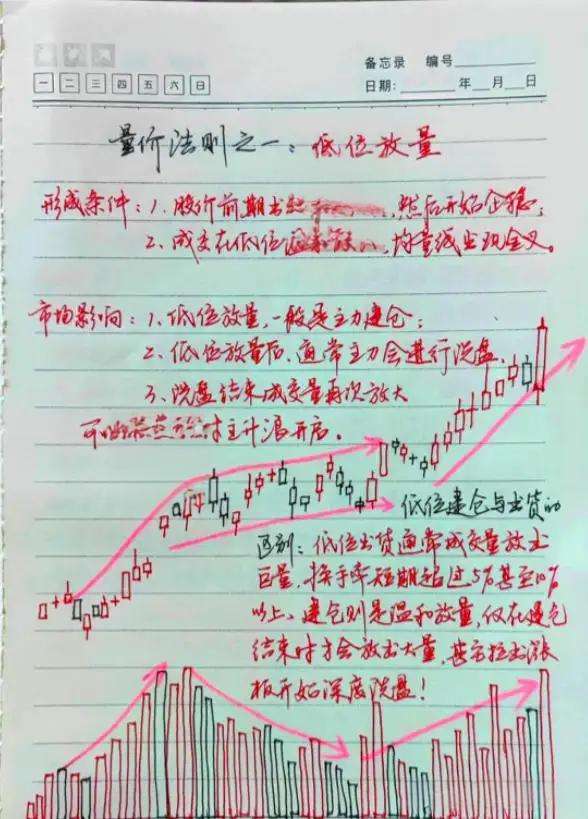 备忘录 编号
一 二 三 四 五 六 日
日期: 年 月 日
量价法则之一：低位放量
形成条件：1. 股价前期出 然后开始企稳；
2. 成交在低位 均量线出现金叉。
市场影响：1、低位放量，一般是主力建仓；
2、低位放量后，通常主力会进行洗盘、
3、洗盘结束成交量再次放大
可 主升浪开启。
低位建仓与出货的
区别：低位出货通常成交量放出
巨量，换手率短期超过5%甚至10%
以上、建仓则是温和放量，仅在建仓
结束时才会放出大量，甚至拉出涨
板开始深度洗盘！